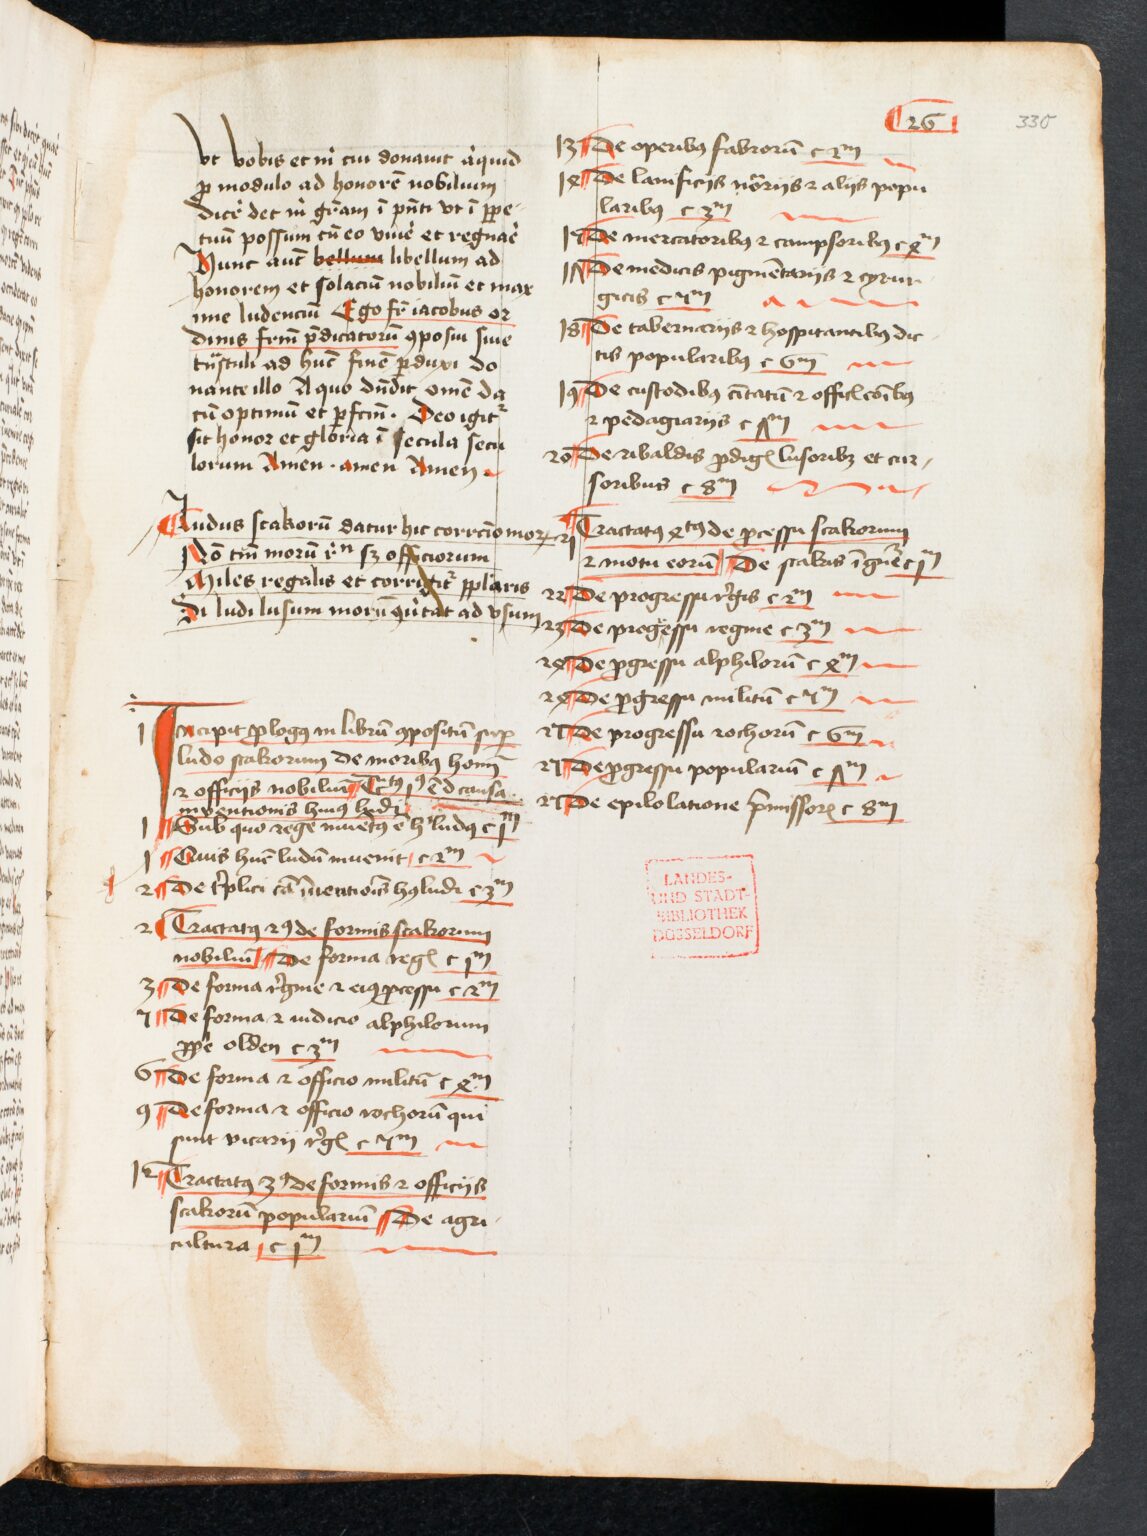 26
335
Vt vobis et mi cui donauit aliquid
p modulo ad honorē nobilium
dicē det m gr̄am ī pn̄ti vt ī ppe-
tuū possum cū eo viuē et regnaē
Nunc autē bellum libellum ad
honorem et solaciū nobiliū et max
ime ludenciū Ego fr̄ iacobus or
dinis frm̄ p̄dicatorū ꝯposui siue
ad hūc finē pduxi do
nante illo A quo dn̄dit omē da
tū optimū et pfctū. Deo igit
sit honor et glōria ī secula secu
lorum Amen. amen Amen
Ludus scakorū datur hic correcio mor
Nō tm̄ morū sz officiorum
Miles regalis et corrigit pplaris
Di ludi lusum morū ad vsum
Incipit plogꝰ in librū ꝯpositū sup
ludo scakorum de moribꝫ homī
⁊ officijs nobiliū Tctꝰ pꝰ ē d causa
inuentionis huiꝰ ludi
1 Sub quo rege inuētꝰ ē hꝰ ludꝰ c 1m
1 Quis hūc ludū inuenit c 2m
2 De t̄plici cā īuentiōis hꝰ ludi c 3m
2 Tractatꝰ 2ꝰ de formis scakorum
nobiliū De forma reg c 1m
3 De forma rḡine ⁊ eiꝰ pcessu c 2m
7 De forma ⁊ iudicio alphilorum
olden c 3m
6 De forma ⁊ officio militū c 4m
9 De forma ⁊ officio rochorū qui
sunt vicarij rḡ c 5m
12 Tractatꝰ 3ꝰ de formis ⁊ officijs
scakorū popularium De agri-
cultura c 1m
13 De operibꝫ fabrorū c 2m
14 De lanificijs nōrijs ⁊ alijs popu
laribꝫ c 3m
15 De mercatoribꝫ ⁊ campsoribꝫ c 4m
17 De medicis pigmētarijs ⁊ cyrur-
gicis c 5m
18 De tabernarijs ⁊ hospitantibꝫ dic-
tis popularibꝫ c 6m
19 De custodibꝫ ciuitatū ⁊ offic cōibꝫ
⁊ pedagiarijs c 7m
20 De ribaldis pdig lusoribꝫ et cur-
soribus c 8m
21 Tractatꝰ 4tꝰ de pcessu scakorum
⁊ motu eorū De scakis ī gn̄e c 1m
22 De progressu rḡis c 2m
23 De progressu regine c 3m
24 De pgressu alphilorū c 4m
24 De pgressu militū c 5m
25 De progressu rochorū c 6m
27 De pgressu popularium c 7m
27 De epilolatione p̄missor c 8m
LANDES-
UND STADT-
BIBLIOTHEK
DÜSSELDORF